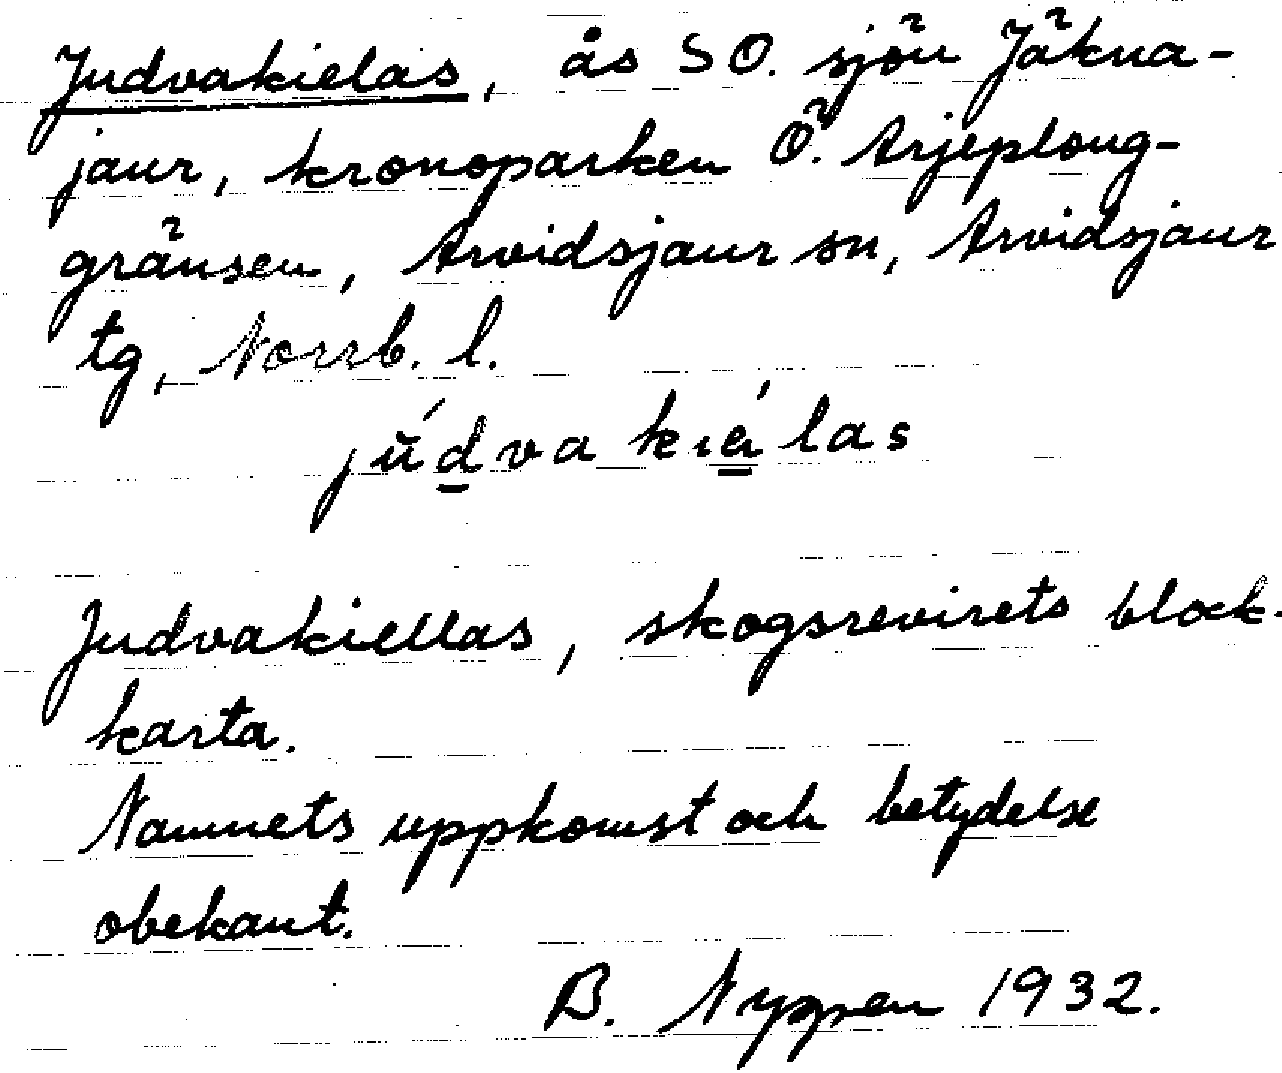 Judvakielas, ås SO. sjön Jäkna-
jaur, kronoparken Ö. Arjeploug-
gränsen, Arvidsjaur sn, Arvidsjaur
tg, Norrb. l.
júdva kiélas
Judvakiellas, skogsrevirets block-
karta.
Namnets uppkomst och betydelse
obekant.
B. Nyppen 1932.